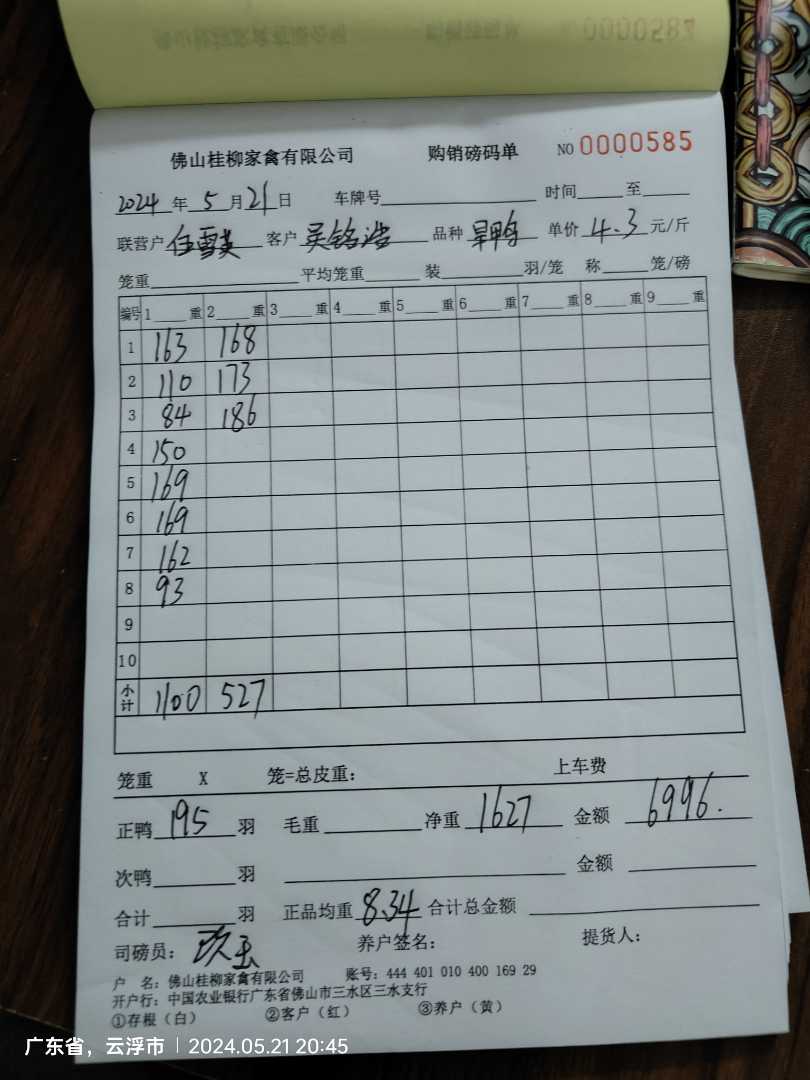 0000584
佛山桂柳家禽有限公司 购销磅码单 NO 0000585
2024 年 5 月 21 日 车牌号 时间 至
联营户 任雪英 客户 吴铭浩 品种 旱鸭 单价 4.3 元/斤
笼重 平均笼重 装 羽/笼 称 笼/磅
编号 1 重 2 重 3 重 4 重 5 重 6 重 7 重 8 重 9 重
1 163 168
2 110 173
3 84 186
4 150
5 169
6 169
7 162
8 93
9
10
小计 1100 527
笼重 X 笼=总皮重: 上车费
正鸭 195 羽 毛重 净重 1627 金额 6996.
次鸭 羽 金额
合计 羽 正品均重 8.34 合计总金额
司磅员: 养户签名: 提货人:
户 名: 佛山桂柳家禽有限公司 账号: 444 401 010 400 169 29
开户行: 中国农业银行广东省佛山市三水区三水支行
①存根（白） ②客户（红） ③养户（黄）
广东省，云浮市 2024.05.21 20:45